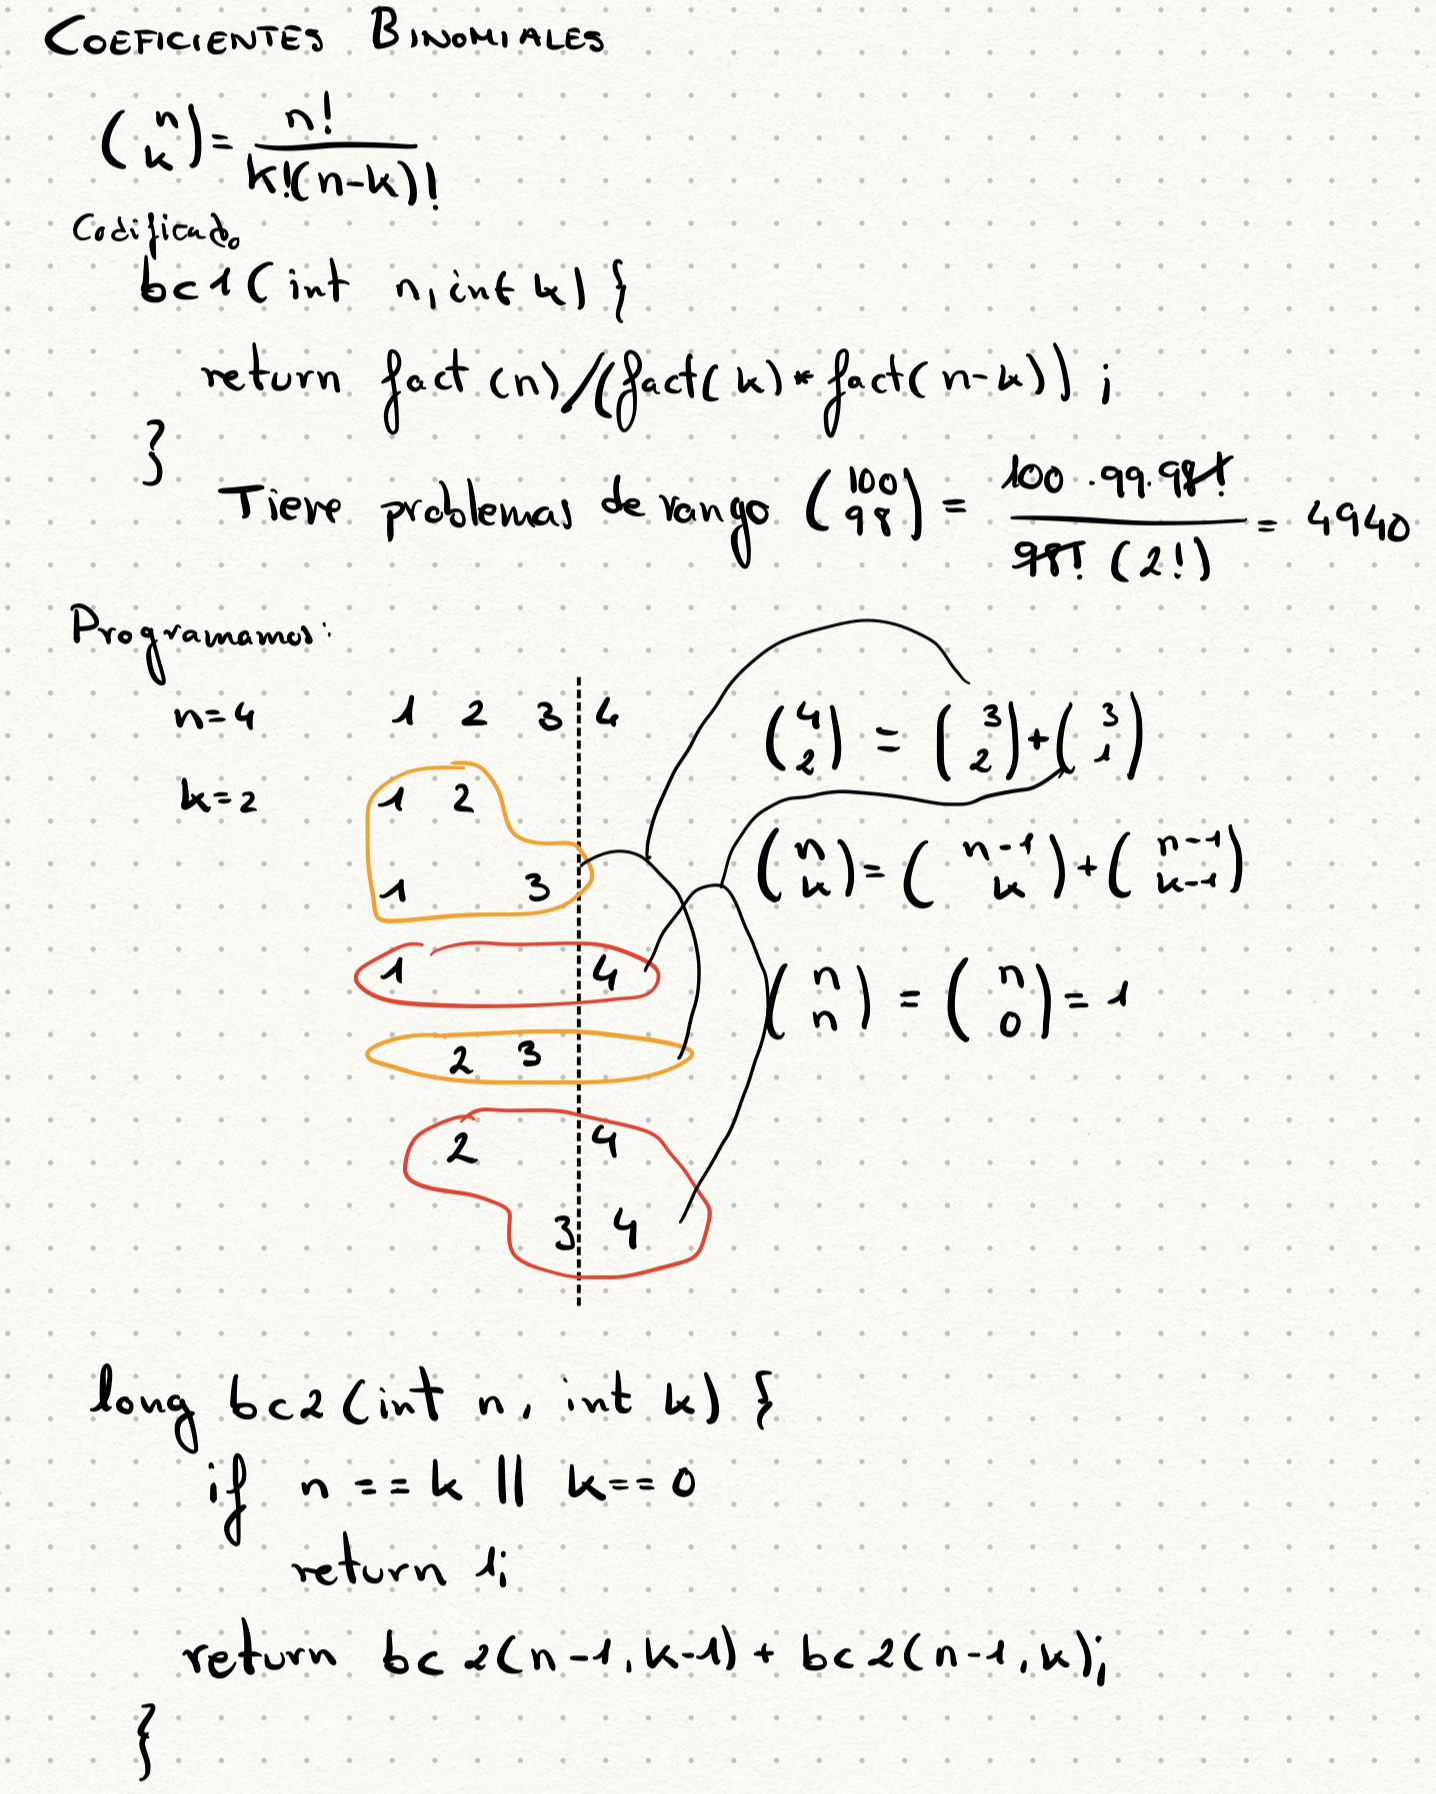 COEFICIENTES BINOMIALES
(n k) = n! / k!(n-k)!
Codificado
bc1(int n, int k) {
return fact(n)/(fact(k)*fact(n-k));
}
Tiene problemas de rango (100 98) = 100.99.98! / 98!(2!) = 4940
Programamos:
n=4 1 2 3 4 (4 2) = (3 2)+(3 1)
k=2 1 2
1 3 (n k) = (n-1 k)+(n-1 k-1)
1 4 (n n) = (n 0) = 1
2 3
2 4
3 4
long bc2(int n, int k) {
if n == k || k == 0
return 1;
return bc2(n-1, k-1) + bc2(n-1, k);
}